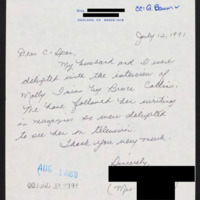 cc: B.
July 12, 1991
Dear C-Span,
My husband and I were
delighted with the interview of
Molly Ivins by Bruce Collins.
We have followed her writing
in magazines so were delighted
to see her on television.
Thank you very much.
Sincerely,
AUG
(Mrs.